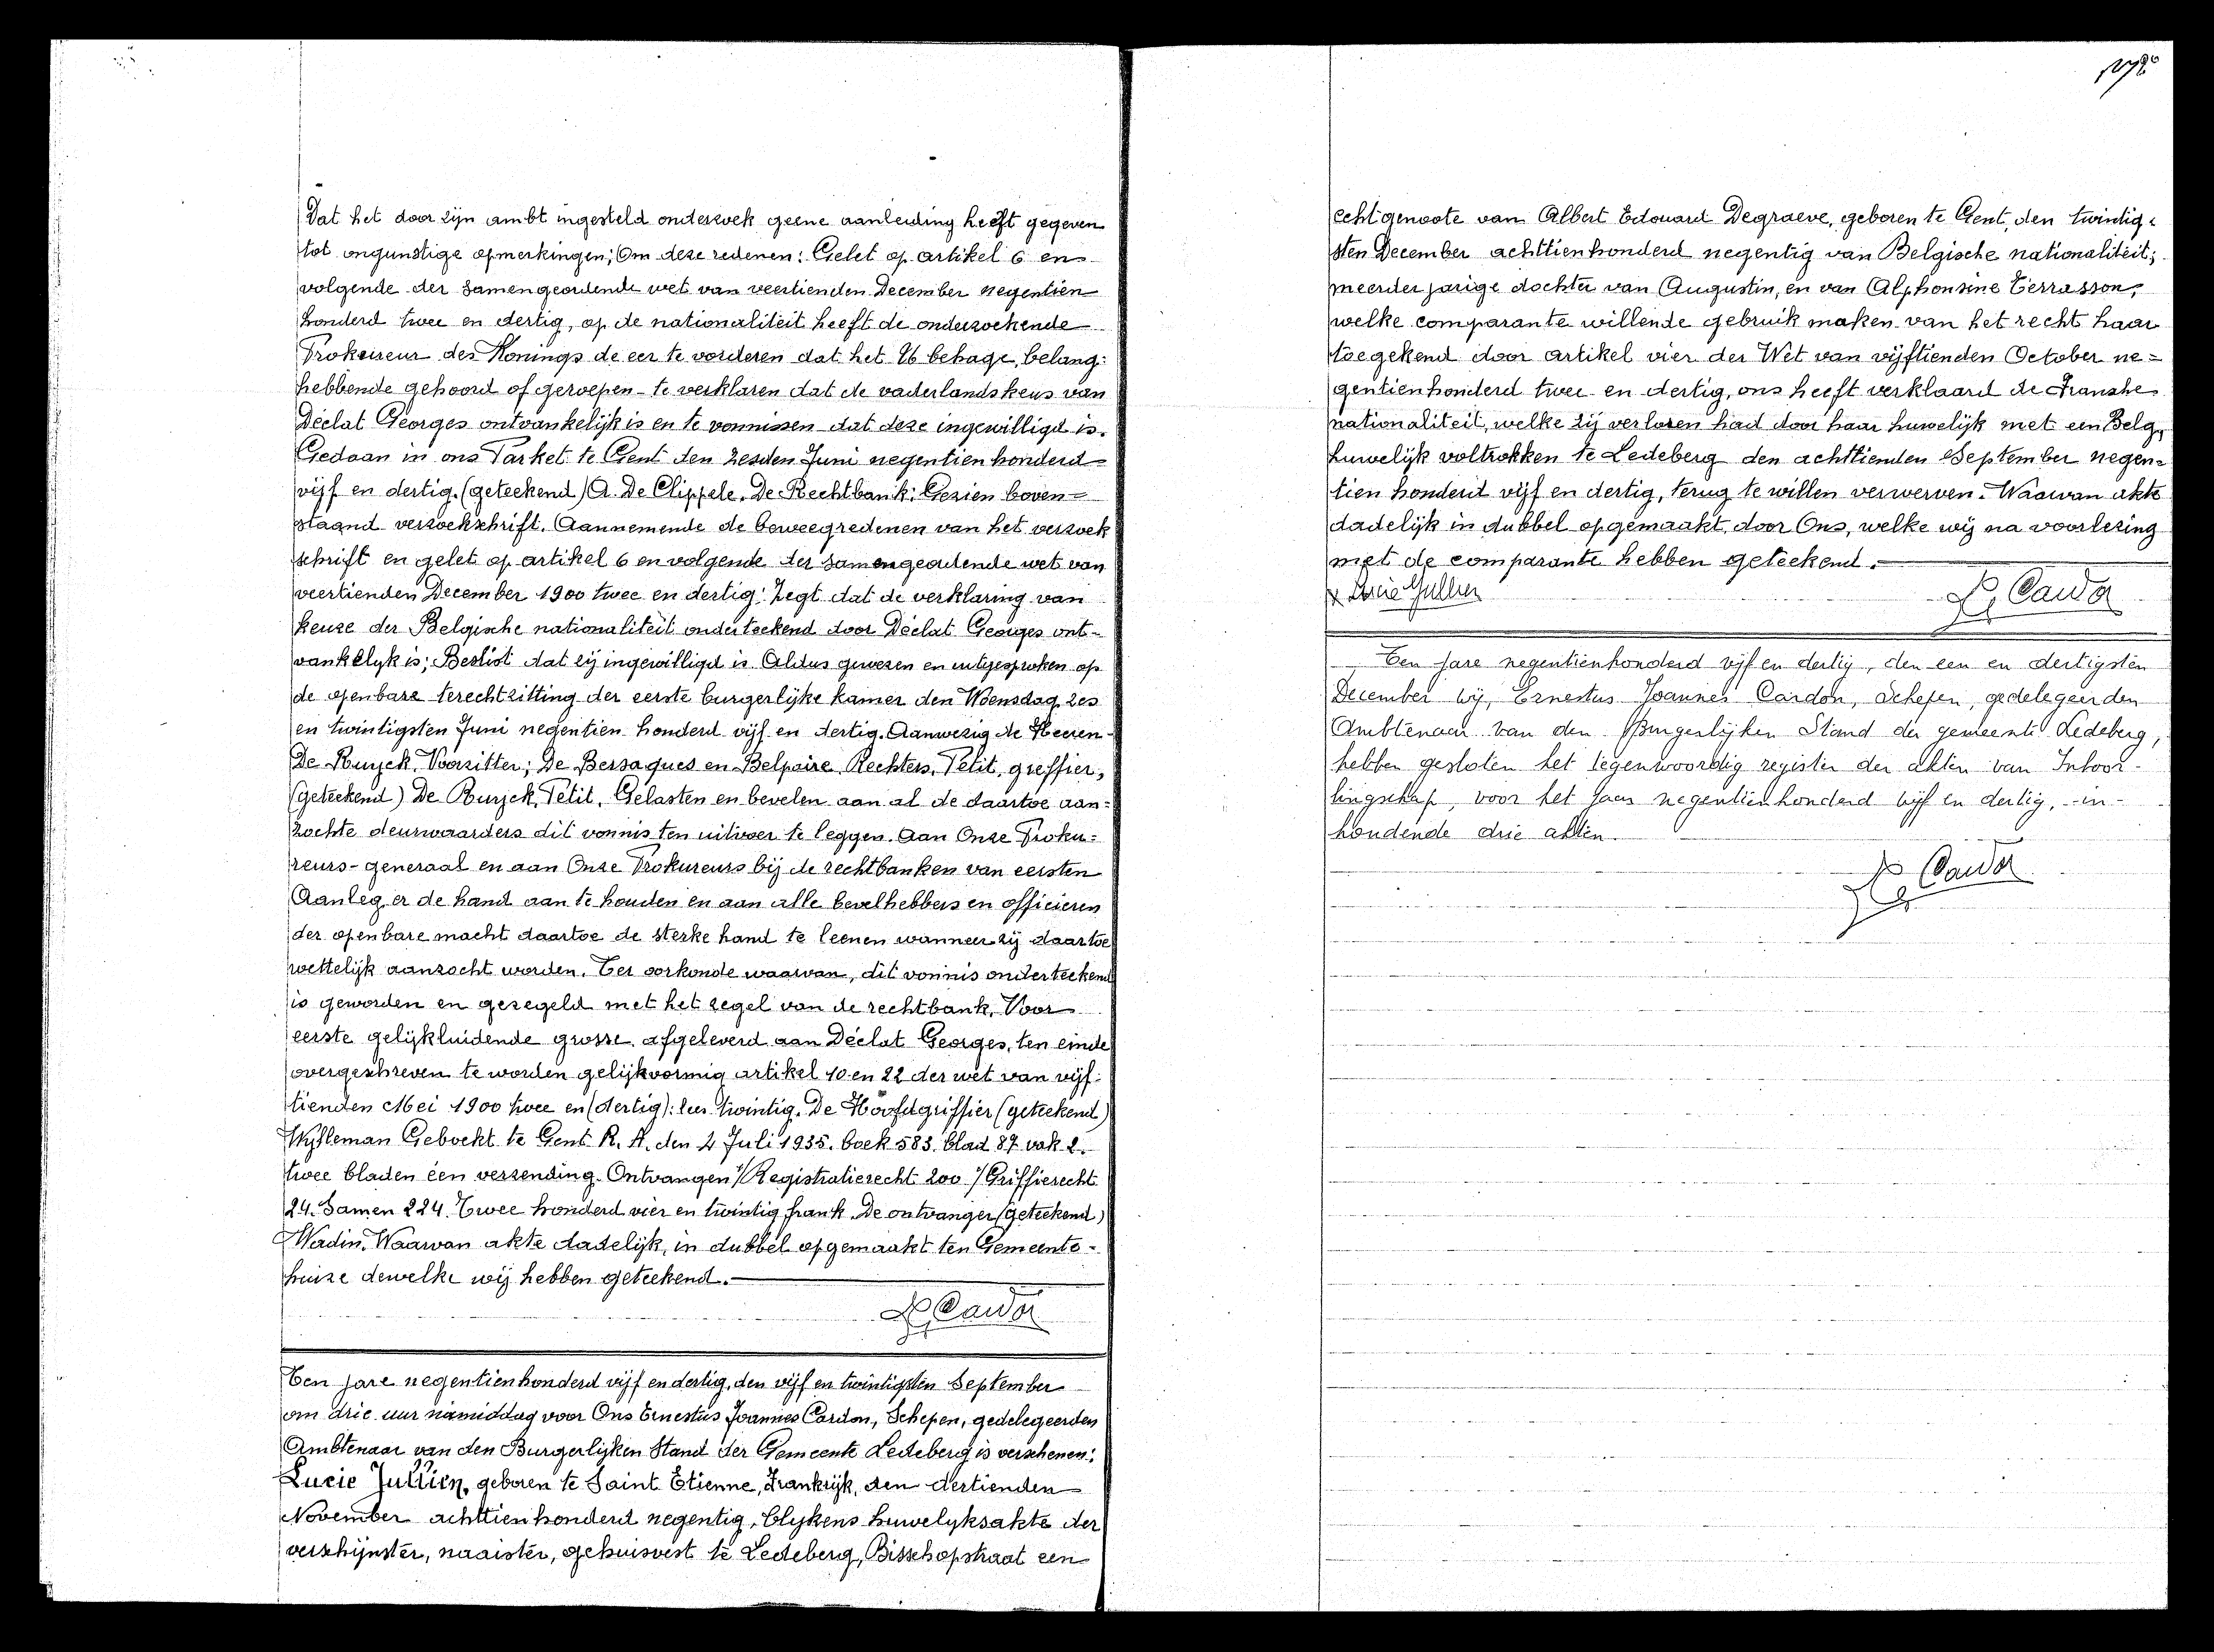 Dat het door zijn ambt ingesteld onderzoek geene aanleiding heeft gegeven
tot ongunstige opmerkingen; Om deze redenen: Gelet op artikel 6 en
volgende der Samengeordende wet van veertienden December negentien
honderd twee en dertig, op de nationaliteit heeft de onderzoekende
Prokureur des Konings de eer te vorderen dat het U6 behage, belang:
hebbende gehoord of geroepen te verklaren dat de vaderlandskeus van
Déclat Georges ontvankelijk is en te vonnissen dat deze ingewilligd is.
Gedaan in ons Parket te Gent den zesden Juni negentien honderd
vijf en dertig. (geteekend) A. De Clippele. De Rechtbank: Gezien boven=
staand verzoekschrift. Aannemende de beweegredenen van het verzoek
schrift en gelet op artikel 6 en volgende der samengeordende wet van
veertienden December 1900 twee en dertig: Zegt dat de verklaring van
keuze der Belgische nationaliteit onderteekend door Déclat Georges ont-
vankelyk is; Beslist dat zij ingewilligd is. Aldus gewezen en uitgesproken op
de openbare terechtzitting der eerste burgerlijke kamer den Woensdag zes
en twintigsten Juni negentien honderd vijf en dertig. Aanwezig de Heeren
De Ruyck, Voorzitter; De Bersaques en Belpaire Rechters, Petit, greffier;
(geteekend) De Ruyck, Petit. Gelasten en bevelen aan al de daartoe aan=
zochte deurwaarders dit vonnis ten uitvoer te leggen. Aan Onze Proku=
reurs-generaal en aan Onze Prokureurs bij de rechtbanken van eersten
Aanleg er de hand aan te houden en aan alle bevelhebbers en officieren
der openbare macht daartoe de sterke hand te leenen wanneer zij daartoe
wettelijk aanzocht worden. Ter oorkonde waarvan, dit vonnis onderteekend
is geworden en gezegeld met het zegel van de rechtbank. Voor
eerste gelijkluidende grosse afgeleverd aan Déclat Georges, ten einde
overgeschreven te worden gelijkvormig artikel 10 en 22 der wet van vijf:
tienden Mei 1900 twee en (dertig): lees twintig. De Hoofdgriffier (geteekend)
Wyfleman Geboekt te Gent R. A. den 2 Juli 1935. boek 583. blad 87 vak 2.
twee bladen éen verzending. Ontvangen 1/ Registratierecht 200 1/ Griffierecht
24. Samen 224. Twee honderd vier en twintig frank. De ontvanger (geteekend)
Wadin. Waarvan akte dadelijk, in dubbel opgemaakt ten Gemeente-
huize dewelke wij hebben geteekend.
Cardon
Ten jare negentienhonderd vijf en dertig, den vijf en twintigsten September
om drie uur namiddag voor Ons Ernestus Joannes Cardon, Schepen, gedelegeerden
Ambtenaar van den Burgerlijken Stand der Gemeente Ledeberg is verschenen:
Lucie Jullien, geboren te Saint Etienne, Frankrijk, den dertienden
November achttienhonderd negentig, blykens huwelyksakte der
verschijnster, naaister, gehuisvest te Ledeberg, Bisschopstraat een
echtgenoote van Albert Edouard Degraeve, geboren te Gent, den twintig=
sten December achttienhonderd negentig van Belgische nationaliteit;
meerderjarige dochter van Augustin, en van Alphonsine Terrasson,
welke comparante willende gebruik maken van het recht haar
toegekend door artikel vier der Wet van vijftienden October ne=
gentienhonderd twee en dertig, ons heeft verklaard de Fransche
nationaliteit, welke zij verloren had door haar huwelijk met een Belg,
huwelijk voltrokken te Ledeberg den achttienden September negen=
tien honderd vijf en dertig, terug te willen verwerven. Waarvan akte
dadelijk in dubbel opgemaakt door Ons, welke wij na voorlezing
met de comparante hebben geteekend.
x Lucie Jullien Cardon
Ten jare negentienhonderd vijf en dertig, den een en dertigsten
December wij, Ernestus Joannes Cardon, Schepen, gedelegeerden
Ambtenaar van den Burgerlijken Stand der gemeente Ledeberg,
hebben gesloten het tegenwoordig register der akten van Inboor-
lingschap, voor het jaar negentienhonderd vijf en dertig, in-
houdende drie akten.
Cardon